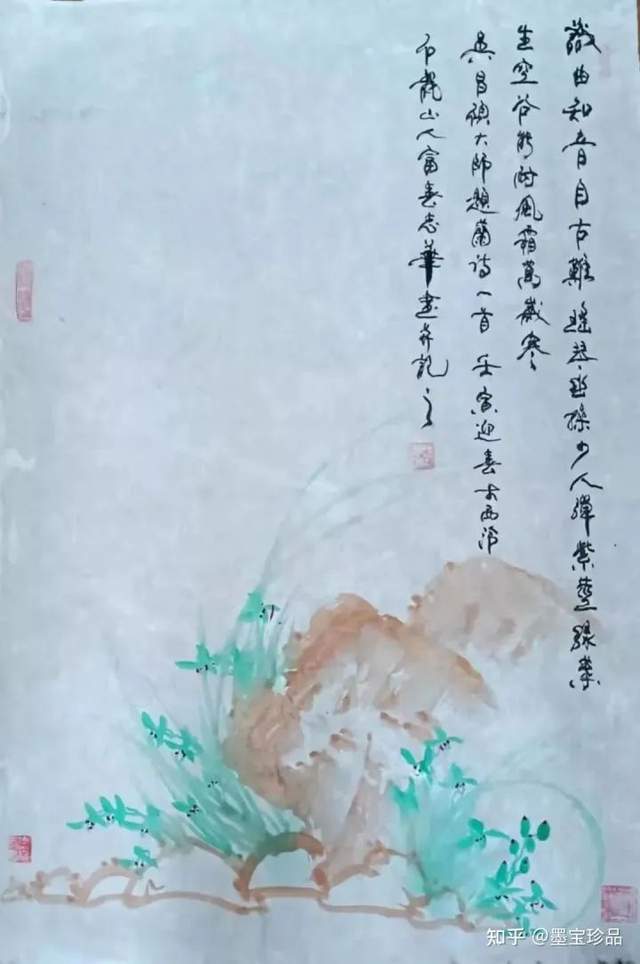 識曲知音自古難瑤琴幽操少人彈紫莖綠葉
生空谷能耐風霜萬歲寒
吳昌碩大師題蘭詩一首壬寅迎春於西泠
龍山人富春志華畫并記之
知乎 @墨宝珍品